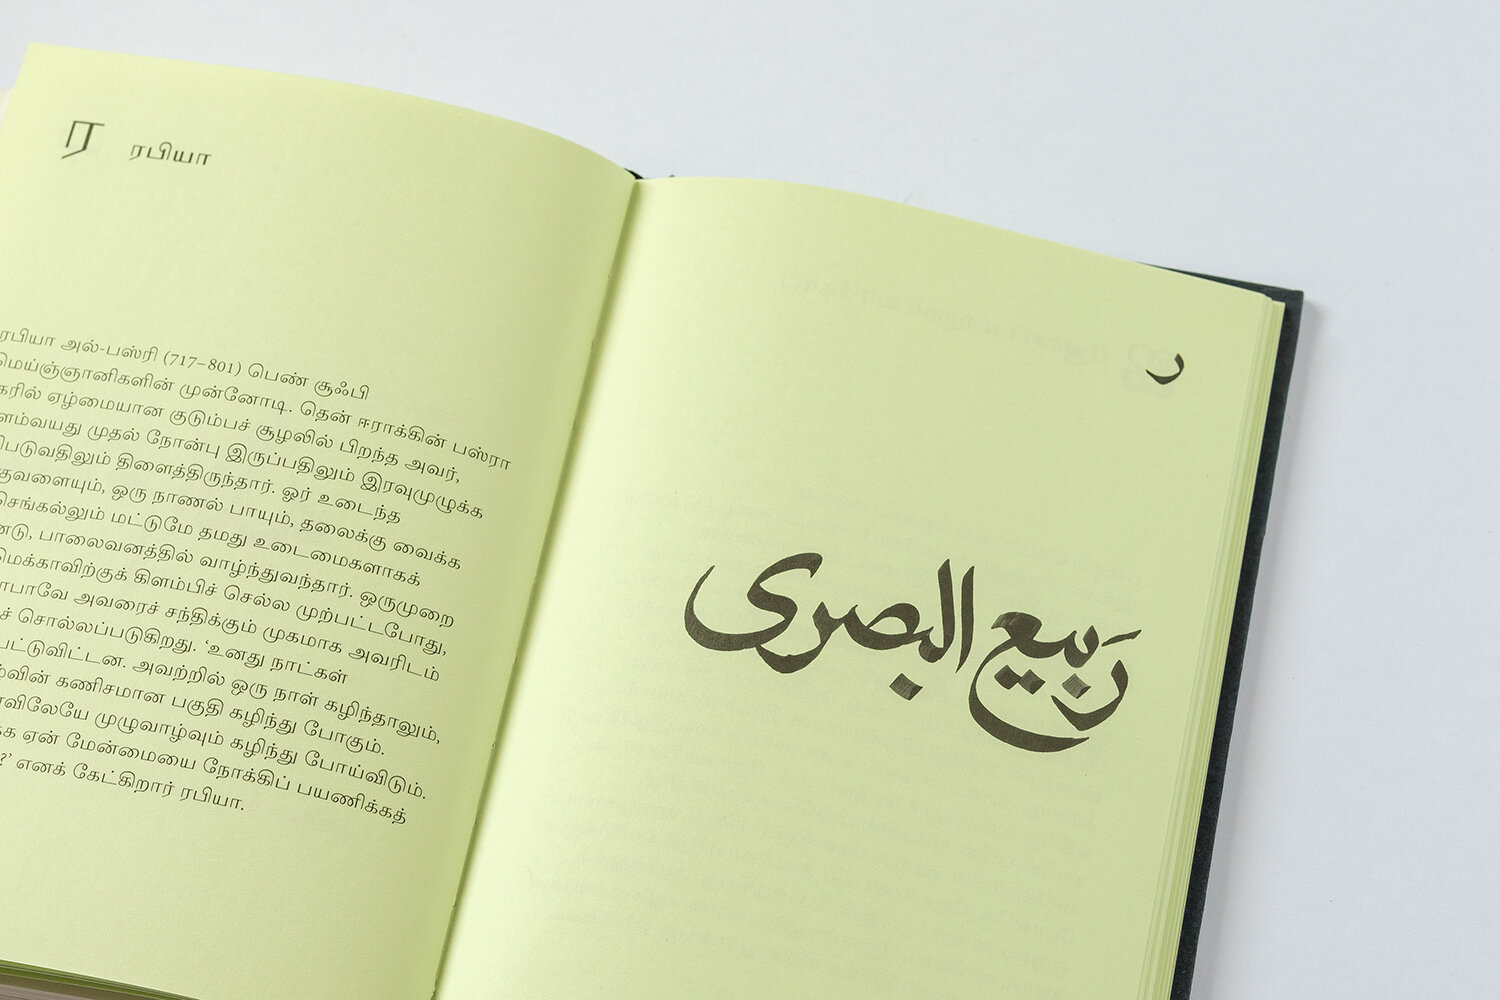 ர ரபியா
ரபியா அல்-பஸ்ரி (717–801) பெண் சூஃபி
மெய்ஞ்ஞானிகளின் முன்னோடி. தென் ஈராக்கின் பஸ்ரா
ஏழ்மையான குடும்பச் சூழலில் பிறந்த அவர்,
முதல் நோன்பு இருப்பதிலும் இரவுமுழுக்க
திளைத்திருந்தார். ஓர் உடைந்த
ஒரு நாணல் பாயும், தலைக்கு வைக்க
செங்கல்லும் மட்டுமே தமது உடைமைகளாகக்
பாலைவனத்தில் வாழ்ந்துவந்தார். ஒருமுறை
மெக்காவிற்குக் கிளம்பிச் செல்ல முற்பட்டபோது,
அவரைச் சந்திக்கும் முகமாக அவரிடம்
சொல்லப்படுகிறது. ‘உனது நாட்கள்
அவற்றில் ஒரு நாள் கழிந்தாலும்,
கணிசமான பகுதி கழிந்து போகும்.
முழுவாழ்வும் கழிந்து போய்விடும்.
ஏன் மேன்மையை நோக்கிப் பயணிக்கத்
?’ எனக் கேட்கிறார் ரபியா.
ر
ربيع البصرى